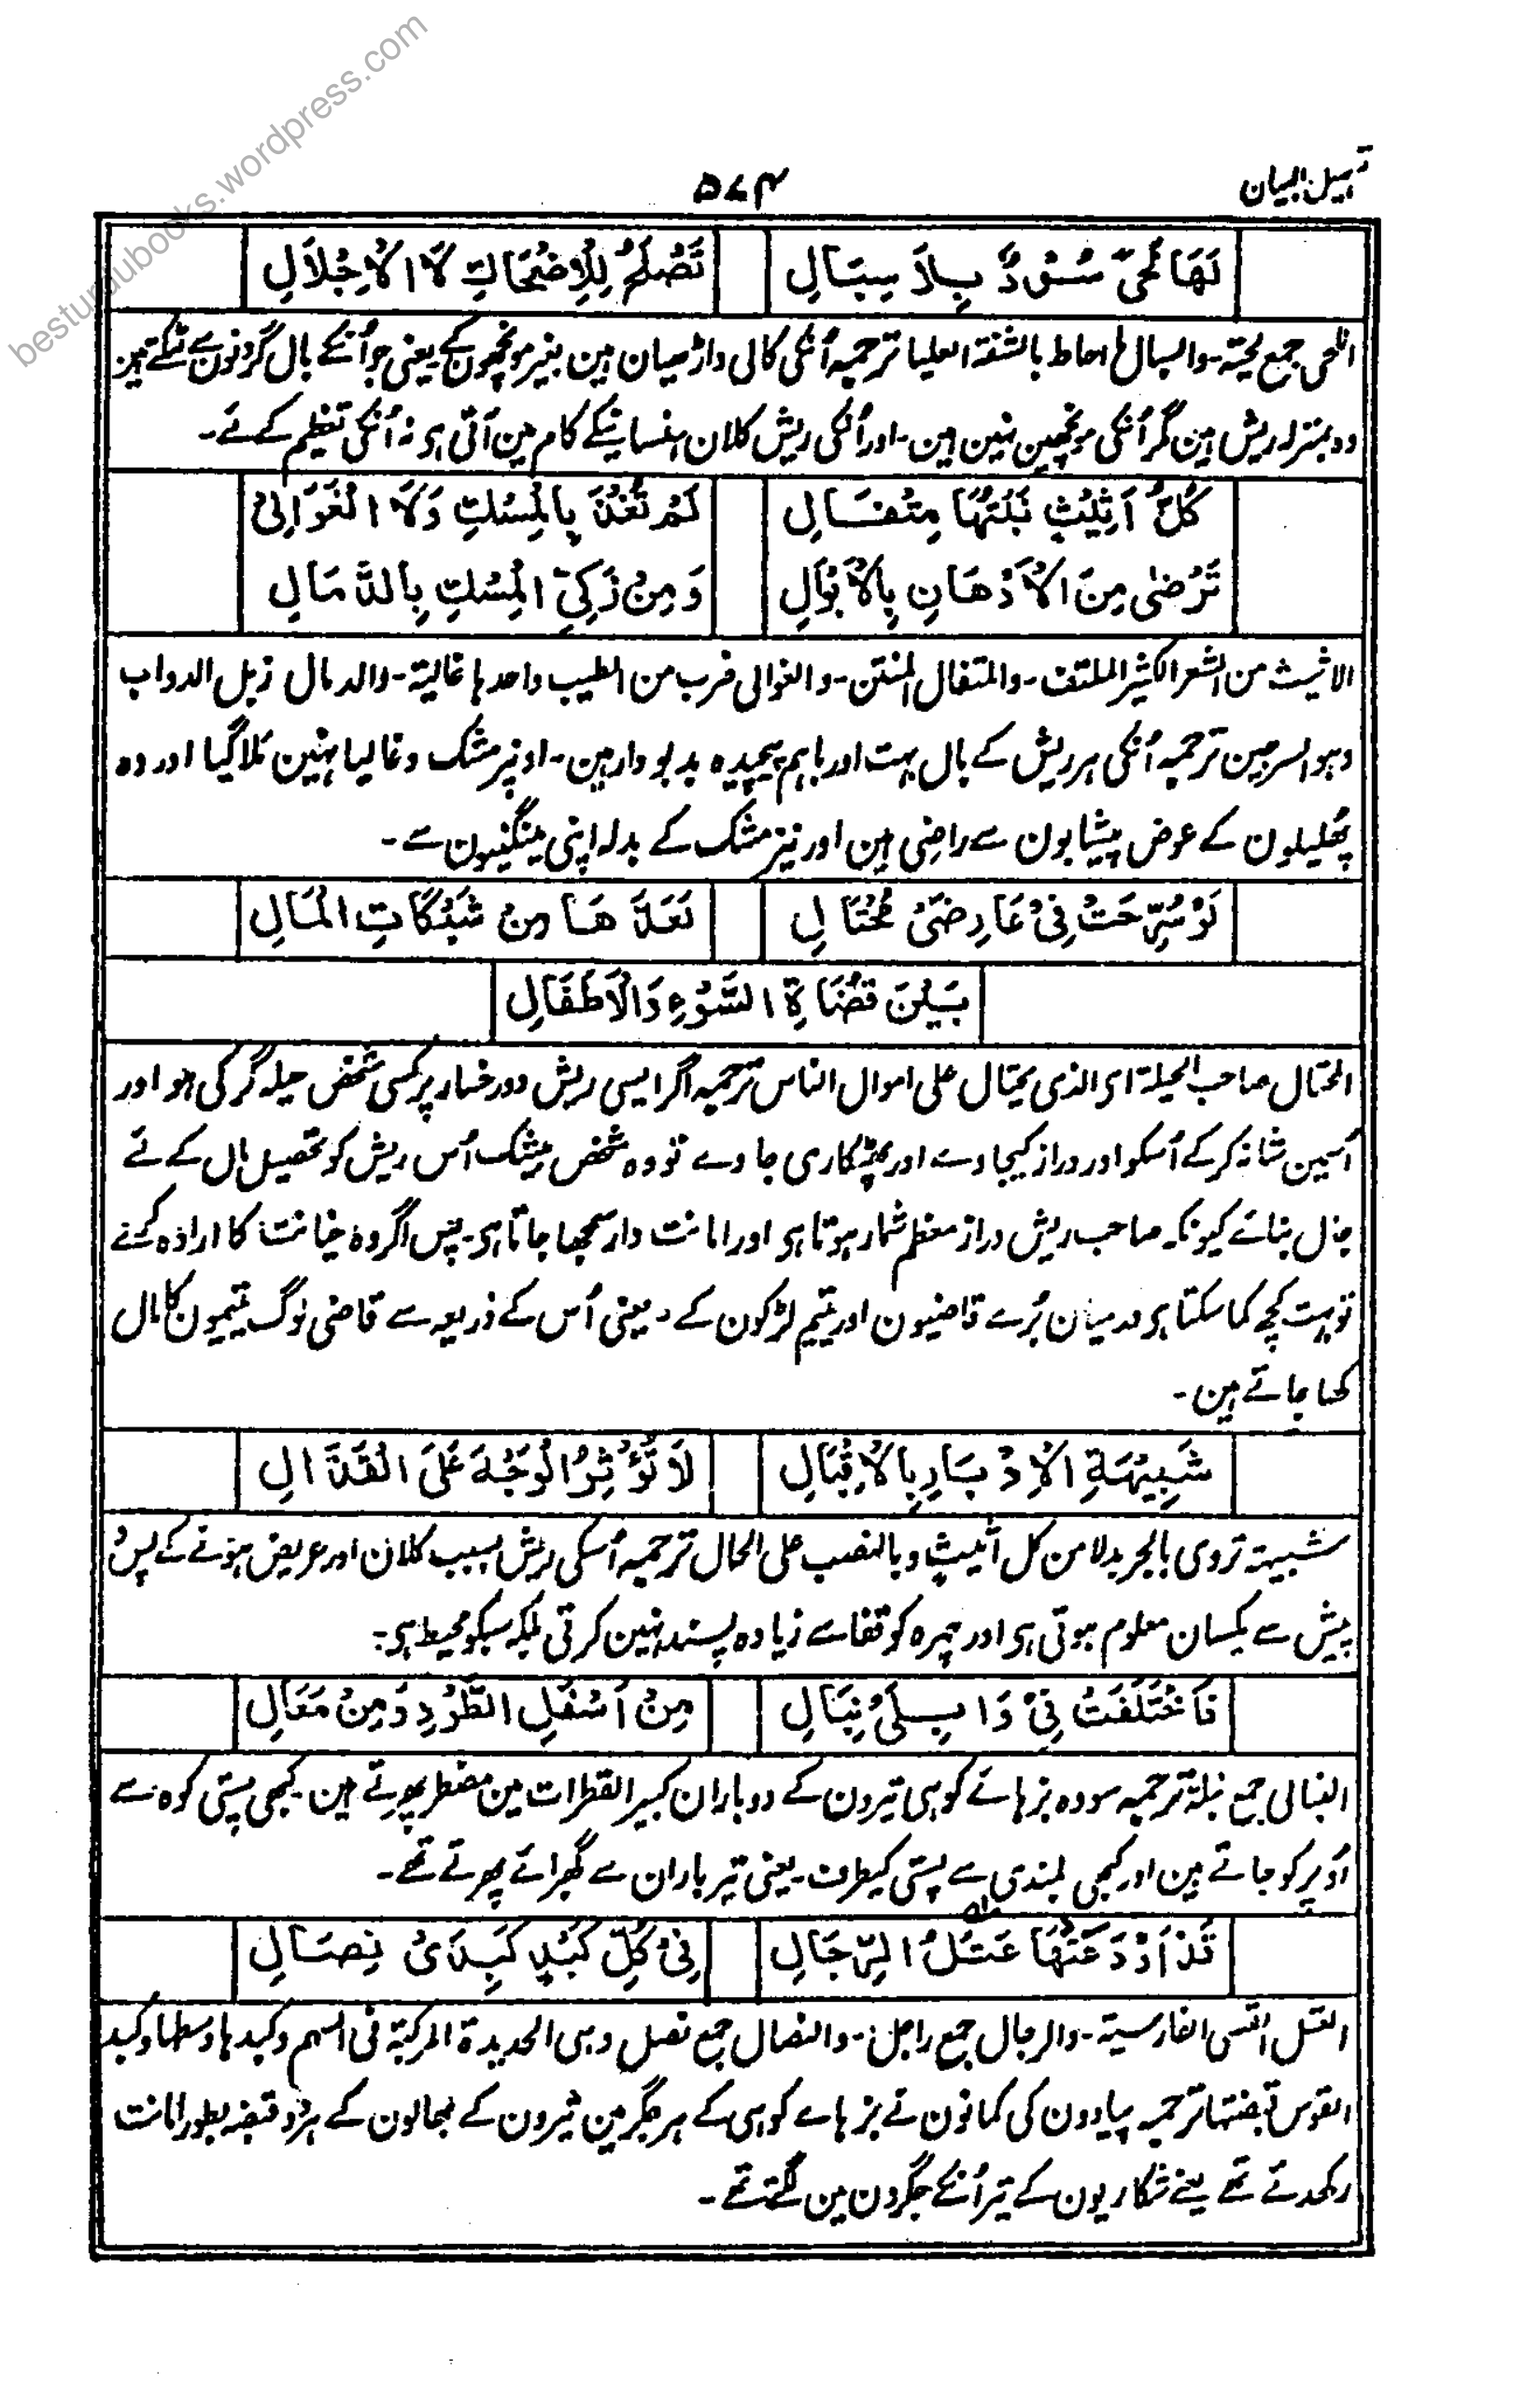 besturdubooks.wordpress.com
تسہیل البیان
۵۷۴
لَهَا لُحًى سُودٌ بِلَا سِبَالِ تَصْلُحُ لِلْاِضْحَاكِ لَا الْاِجْلَالِ
اللحی جمع لحیۃ۔ والسبال ما احاط بالشفۃ العلیا ترجمہ اُنکی کالی داڑھیان ہین بغیر مونچھون کے یعنی جو اُنکے بال گردنون سے لٹکے ہین
وہ بمنزلہ ریش ہین مگر اُنکی مونچھین نہین ہین۔ اور اُنکی ریش کلان ہنسانیکے کام مین آتی ہی نہ اُنکی تعظیم کے لئے۔
كُلُّ اَثِيْثٍ نَبْتُهَا مِتْفَالِ لَمْ تُغْذَ بِالْمِسْكِ وَلَا الْغَوَالِيْ
تَرْضٰى مِنَ الْاَدْهَانِ بِالْاَبْوَالِ وَمِنْ زَكِيِّ الْمِسْكِ بِالدَّمَالِ
الاثیث من الشعر الکثیر الملتف۔ والمتفال المنتن۔ والغوالی ضرب من الطیب واحدہا غالیۃ۔ والدمال زبل الدواب
وہو السرجین ترجمہ اُنکی ہر ریش کے بال بہت اور باہم پیچیدہ بدبودار ہین۔ اونپر مشک وغالیا نہین مَلا گیا اور وہ
پھلیلون کے عوض پیشابون سے راضی ہین اور نیز مشک کے بدلہ اپنی مینگنیون سے۔
لَوْ سُرِّحَتْ فِيْ عَارِضَيْ مُحْتَالِ لَعَدَّهَا مِنْ شَبَكَاتِ الْمَالِ
بَيْنَ قُضَاةِ السَّوْءِ وَالْاَطْفَالِ
المحتال صاحب الحیلۃ ای الذی یحتال علی اموال الناس ترجمہ اگر ایسی ریش دو رخسار پر کسی شخص حیلہ گر کی ہو اور
اُسمین شانہ کرکے اُسکو اور دراز کیجاوے اور پھٹکاری جاوے تو وہ شخص بیشک اُس ریش کو تحصیل مال کے لئے
جال بنائے کیونکہ صاحب ریش دراز معظم شمار ہوتا ہی اور امانت دار سمجھا جاتا ہی۔ پس اگر وہ خیانت کا ارادہ کرے
تو بہت کچھ کما سکتا ہی درمیان بُرے قاضیون اور یتیم لڑکون کے۔ یعنی اُس کے ذریعہ سے قاضی لوگ یتیمون کا مال
کھا جاتے ہین۔
شَبِيْهَةِ الْاِدْبَارِ بِالْاِقْبَالِ لَا تُؤْثِرُ الْوَجْهَ عَلَى الْقَذَالِ
شبیہۃ تروی بالجر بدلا من کل اثیث وبالنصب علی الحال ترجمہ اُسکی ریش بسبب کلان اور عریض ہونے کے پس و
پیش سے یکسان معلوم ہوتی ہی اور چہرہ کو قفا سے زیادہ پسند نہین کرتی بلکہ سبکو محیط ہی۔
فَاخْتَلَفَتْ فِيْ وَابِلَيْ نِبَالِ مِنْ اَسْفَلِ الطَّوْدِ وَمِنْ مَعَالِ
النبال جمع نبلۃ ترجمہ سو وہ بزہائے کوہی تیرون کے دو باران کبیر القطرات مین مضطر پھرتے ہین۔ کبھی پستی کوہ سے
اُوپر کو جاتے ہین اور کبھی بلندی سے پستی کیطرف۔ یعنی تیر باران سے گھبرائے پھرتے تھے۔
قَدْ اَوْدَعَتْهَا عَتَلُ الرِّجَالِ فِيْ كُلِّ كَبْدٍ كَبِدَيْ نِصَالِ
العتل القسی الفارسیۃ۔ والرجال جمع راجل۔ والنصال جمع نصل وہی الحدیدۃ المرکبۃ فی السہم وکبدہا وسطہا وکبد
القوس قبضتہا ترجمہ پیادون کی کمانون نے بزہائے کوہی کے ہر جگر مین تیرون کے بھالون کے ہر دو قبضہ بطور امانت
رکھدئے تھے یعنے شکاریون کے تیر اُنکے جگرون مین لگتے تھے۔